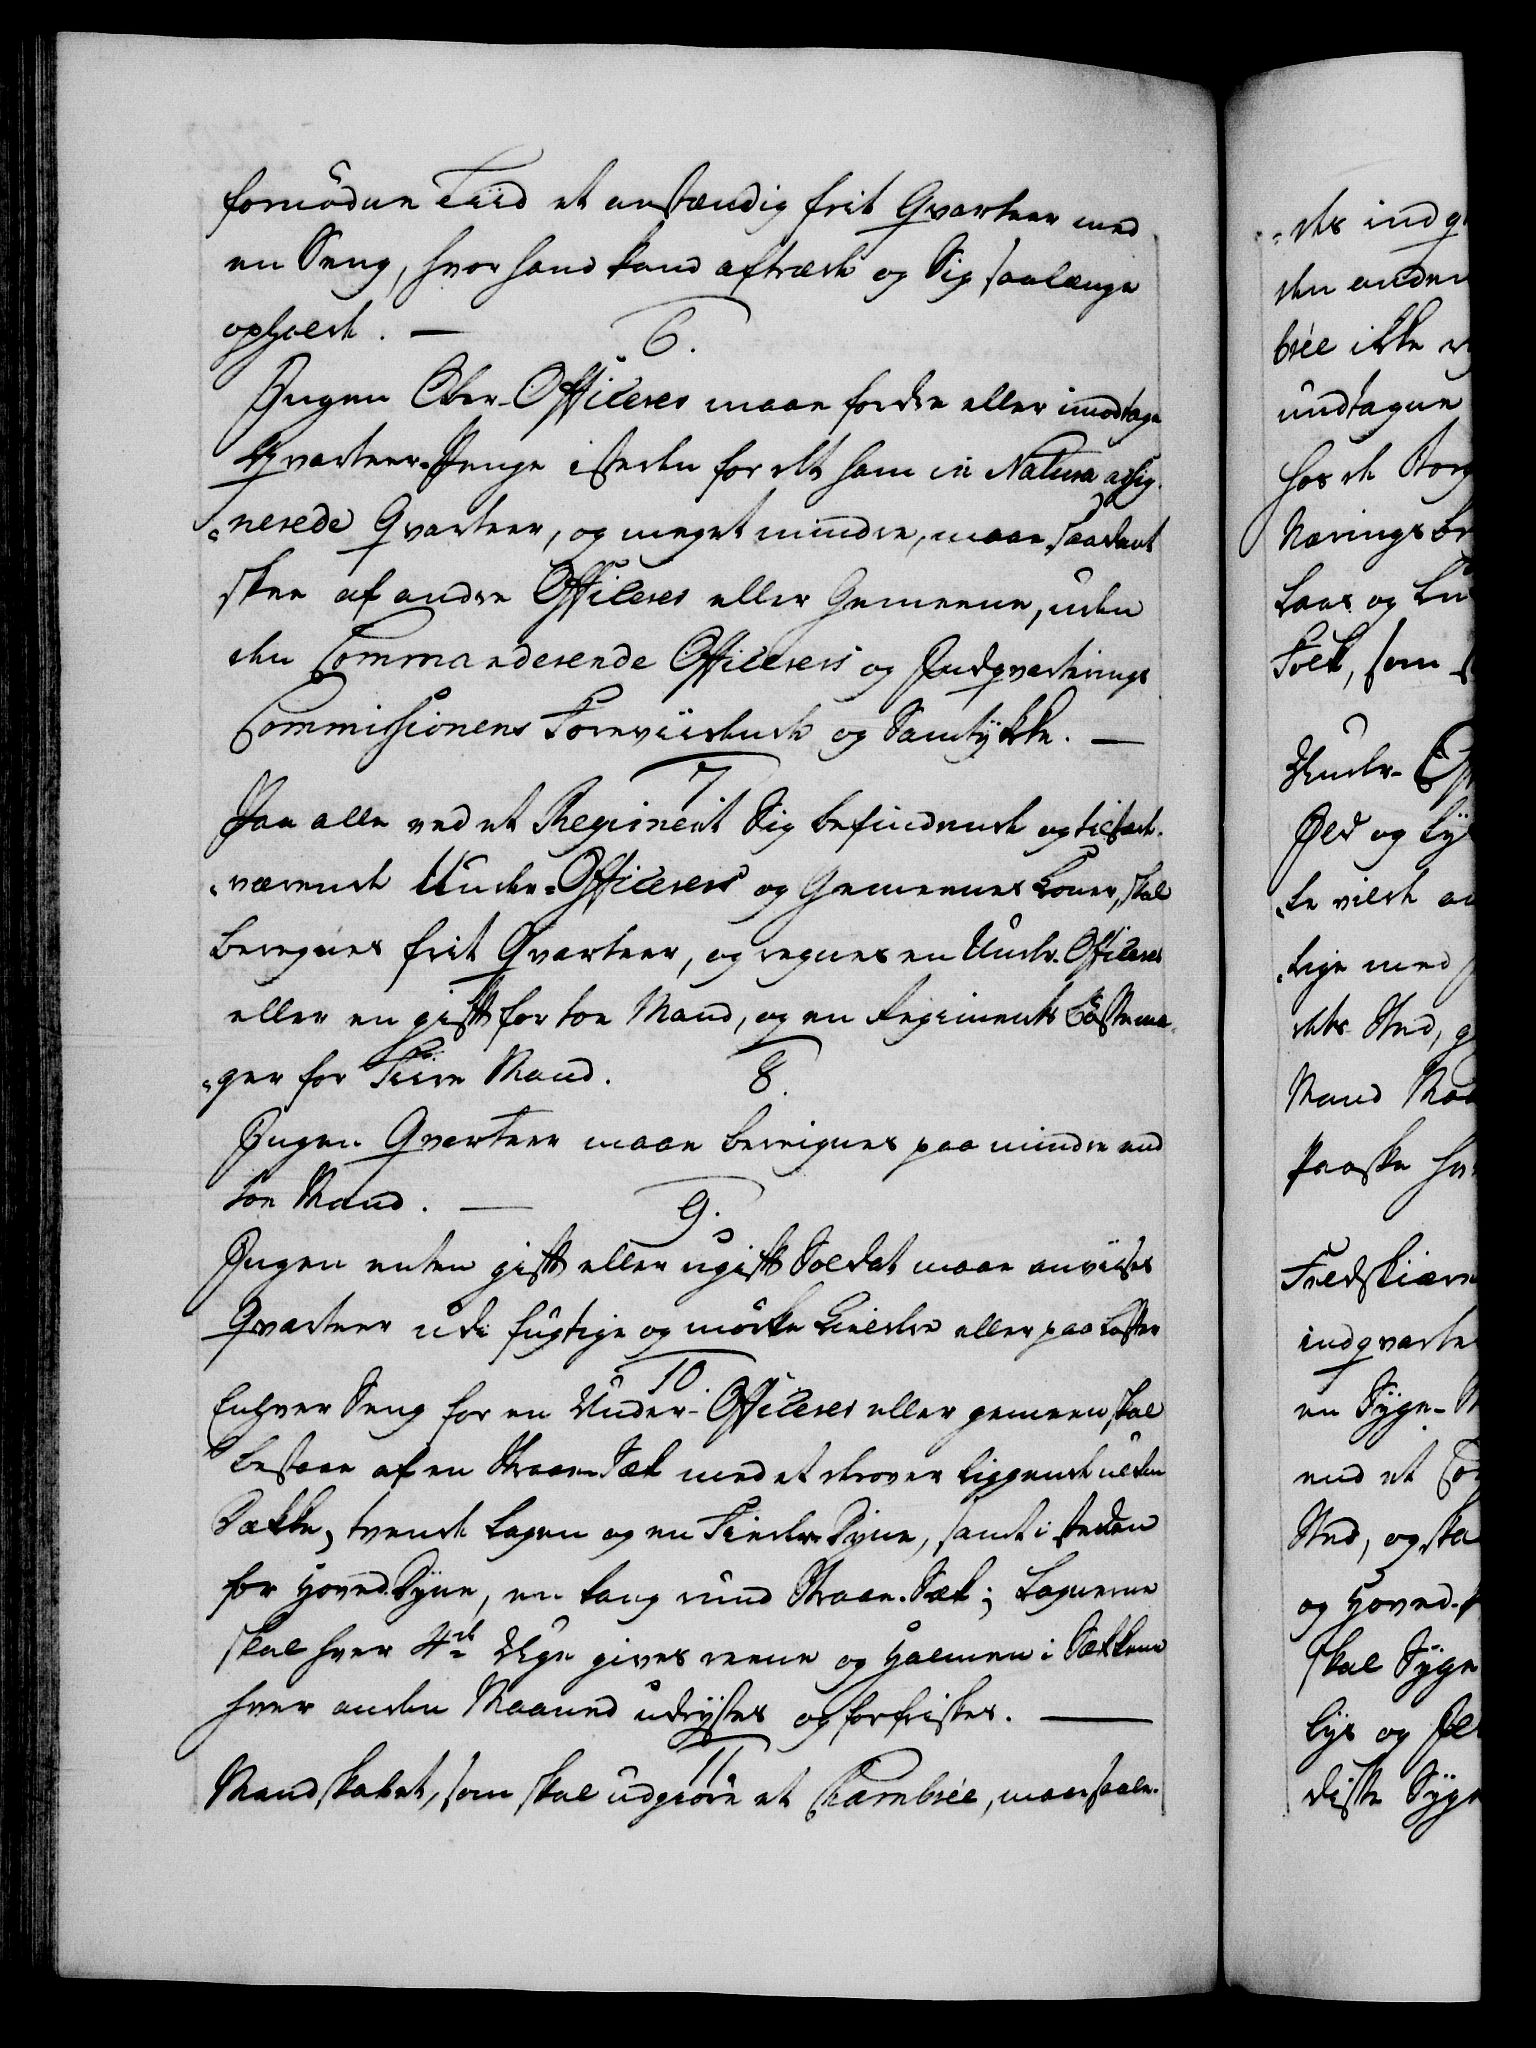 fornöden Tiid et anstændig frit Qvarteer med
en Seng, hvor hand kand aftræde og Sig saalænge
opholde. —
6.
Ingen Ober-Officerer maae fordre eller imodtage
Qvarteer-Penge isteden for det ham in Natura assig-
nerede Qvarteer, og meget mindre, maae saadant
skee af andre Officerer eller Gemeene, uden
den Commanderende Officerers og Indqvarterings
Commissionens Foreviidende og Samtÿkke. —
7
Paa alle ved et Regiment Sig befindende og tilstæde-
værende Under-Officerers og Gemeenes Koner, skal
beregnes frit Qvarteer, og regnes en Under-Officerer
eller en gift for toe Mand, og en Regiments
ger for Fiire Mand.
8.
Ingen Qvarteer maae bereignes paa mindre end
toe Mand. —
9.
Ingen enten gift eller ugift Soldat maae anviises
Qvarteer udi fugtige og mörke Kieldre eller paa Lofter
10.
Enhver Seng for en Under-Officerer eller gemeen skal
bestaae af en Straae-Sæk med et derover liggende ulden
Dække, tvende Lagen og en Fieder-Dÿne, samt i steden
for Hoved-Dÿne, en lang rund Straae-Sæk; Lagnerne
skal hver 4de Uge gives reene og Halmen i Sækkene
hver anden Maaned udrÿstes og forfriskes. —
11
Mandskabet, som skal udgiöre et Chambrée, maae saale-
des indq
den anden
brée ikke
undtagne
hos de Borg
Nærings
Laas og
Folk, som
Under-Off
Ild og Lÿ
ke vilde
lige med
dets Sted,
Mand
Paaske
Feldskiære
indqvarte
en Sÿge-
end et
Sted, og ska
og Hoved-
skal Sÿge
Lÿs og Ild
diske Sÿge